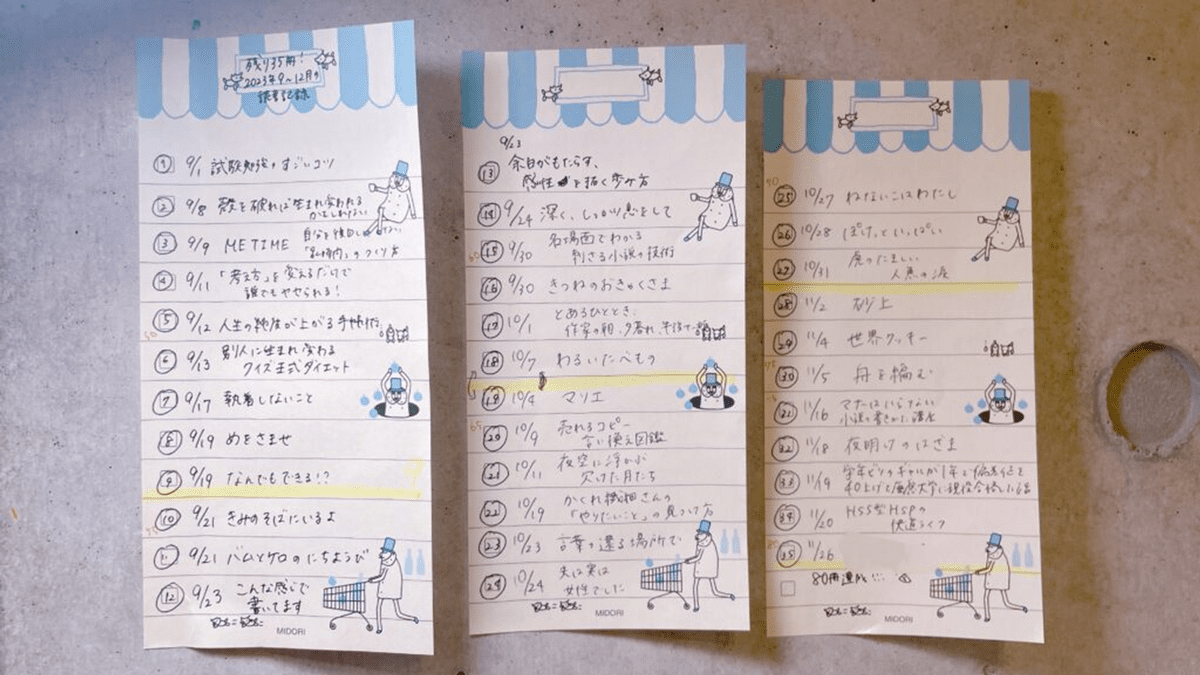 残り35冊!
2023年9~12月の
読書記録
① 9/1 試験勉強のすごいコツ
② 9/8 殻を破れば生まれ変われる
かもしれない
③ 9/9 ME TIME 自分を後回しにしない
「私時間」のつくり方
④ 9/11 「考え方」を変えるだけで
誰でもやせられる!
50
⑤ 9/12 人生の純度が上がる手帳術
⑥ 9/13 別人に生まれ変わる
クイズ王式ダイエット
⑦ 9/17 執着しないこと
⑧ 9/19 めをさませ
⑨ 9/19 なんでもできる!?
55
⑩ 9/21 きみのそばにいるよ
⑪ 9/21 バムとケロのにちようび
⑫ 9/23 こんな感じで
書いてます
MIDORI
9/23
⑬ 余白がもたらす、
感性を拓く歩み方
⑭ 9/24 深く、しっかり息をして
60
⑮ 9/30 名場面でわかる
刺さる小説の技術
⑯ 9/30 きつねのおきゃくさま
⑰ 10/1 とあるひととき
作家の朝、夕暮れ、
⑱ 10/7 わるいたべもの
⑲ 10/4 マリエ
65
⑳ 10/9 売れるコピー
言い換え図鑑
㉑ 10/11 夜空に浮かぶ
欠けた月たち
㉒ 10/19 かくれ繊細さんの
「やりたいこと」の見つけ方
㉓ 10/23 言葉の還る場所で
㉔ 10/24 夫は実は
女性でした
MIDORI
㉕ 10/27 ねないこはわたし
㉖ 10/28 ぽけっといっぱい
㉗ 10/31 虎のたましい
人魚の涙
㉘ 11/2 砂上
㉙ 11/4 世界クッキー
㉚ 11/5 舟を編む
㉛ 11/16 マナーはいらない
小説の書きかた講座
㉜ 11/18 夜明けのはざま
㉝ 11/19 学年ビリのギャルが1年で偏差値を
40上げて慶應大学に現役合格した話
㉞ 11/20 HSS型HSPの
快適ライフ
㉟ 11/26
80冊達成!!!
MIDORI